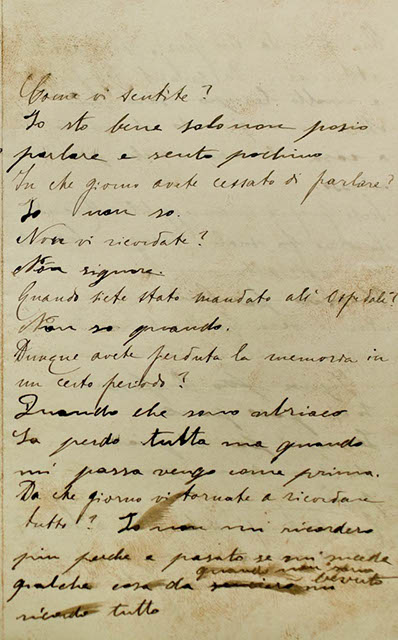 Come vi sentite?
Io sto bene solo non posio
parlare e sento pochino
In che giorno avete cessato di parlare?
Io non so.
Non vi ricordate?
Non signore.
Quando siete stato mandato all Ospedale?
Non so quando.
Dunque avete perduta la memoria in
un certo periodo?
Quando che sono ubriaco
la perdo tutta ma quando
mi passa vengo come prima.
Da che giorno vi tornate a ricordare
tutto? Io non mi ricordero
piu perche a pasato se mi sucede
quando non sono bevuto
qalche cosa da mi
ricordo tutto